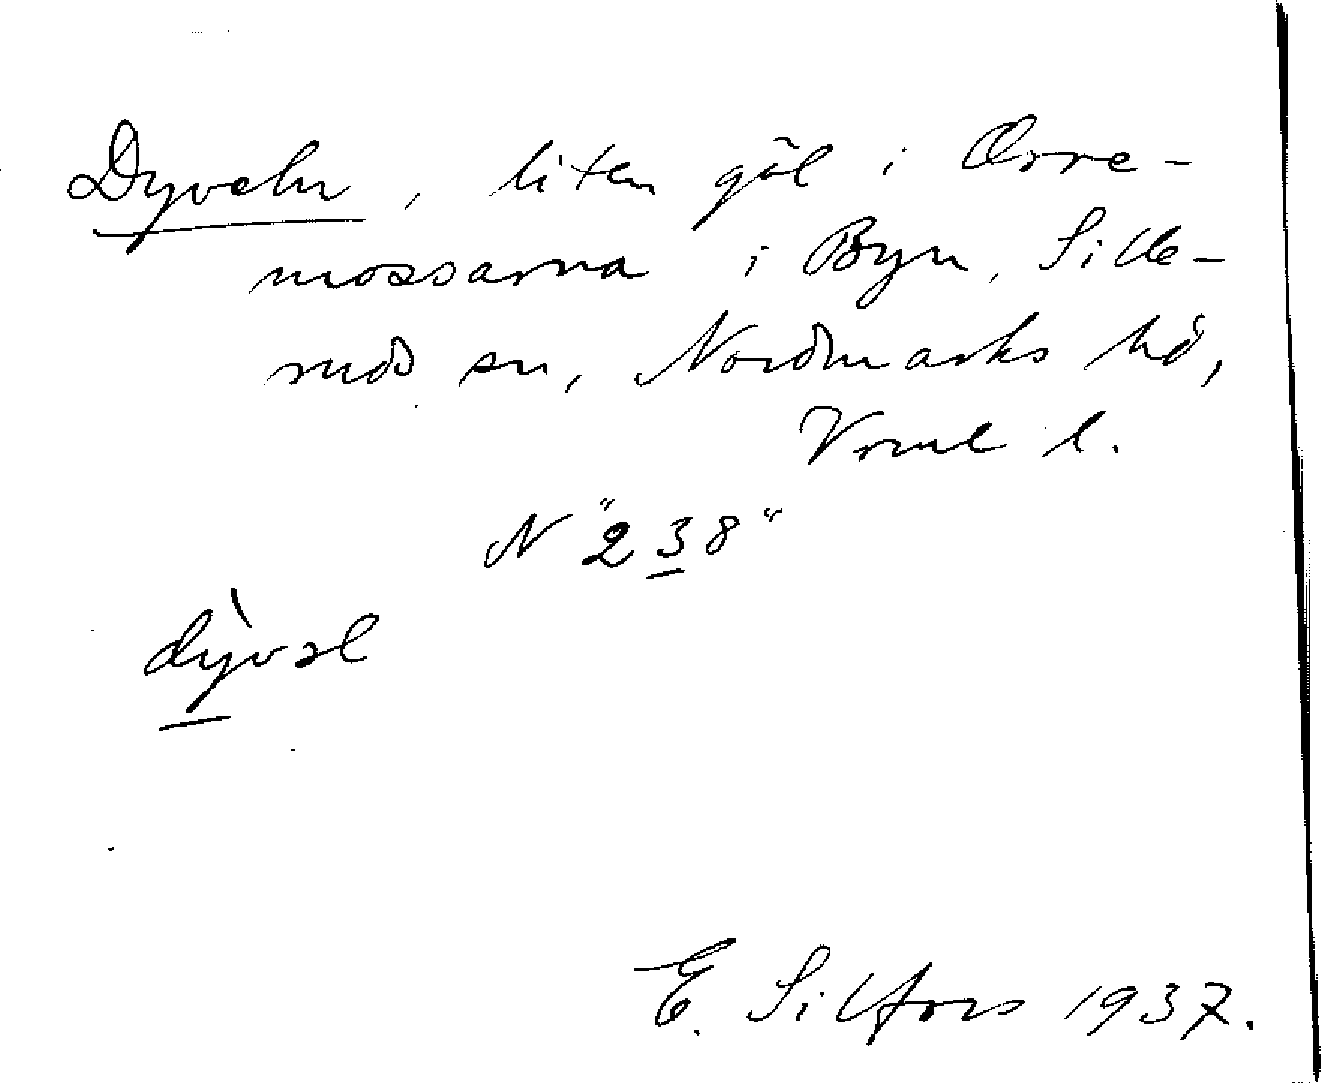 Dyveln, liten göl i Orre-
mossarna i Byn, Sille-
ruds sn, Nordmarks hd,
Vrml l.
N "238"
dỳvəl
E. Silfors 1937.